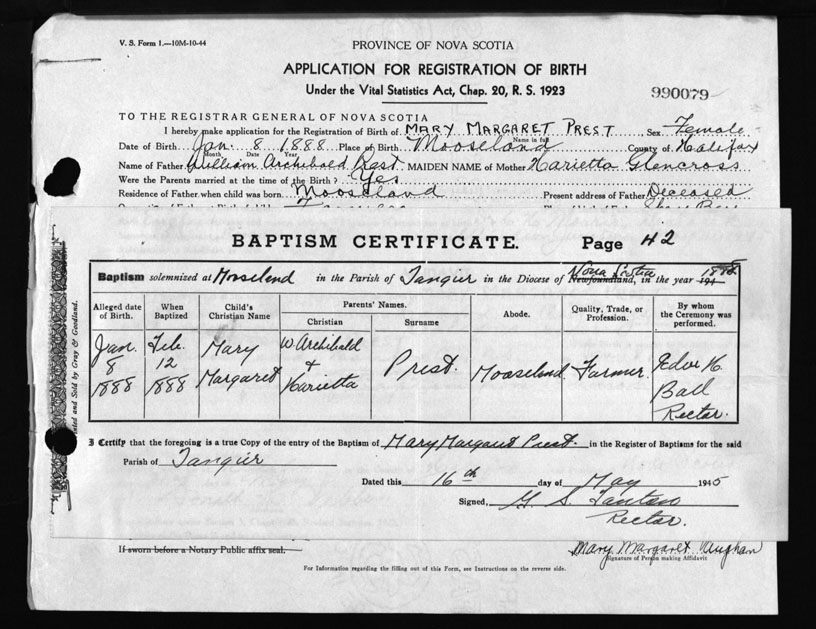 V. S. Form 1.—10M-10-44
PROVINCE OF NOVA SCOTIA
APPLICATION FOR REGISTRATION OF BIRTH
Under the Vital Statistics Act, Chap. 20, R. S. 1923
990079
TO THE REGISTRAR GENERAL OF NOVA SCOTIA
I hereby make application for the Registration of Birth of MARY MARGARET PREST Sex Female
Name in full
Date of Birth Jan. 8 1888 Place of Birth Mooseland County of Halifax
Month Date Year
Name of Father William Archibald Prest MAIDEN NAME of Mother Harietta Glencross
Were the Parents married at the time of the Birth? Yes
Residence of Father when child was born Mooseland Present address of Father Deceased
BAPTISM CERTIFICATE. Page 42
Baptism solemnized at Mooseland in the Parish of Tangier in the Diocese of Newfoundland, Nova Scotia in the year 194 1888
Alleged date of Birth. When Baptized Child's Christian Name Parents' Names. Christian Surname Abode. Quality, Trade, or Profession. By whom the Ceremony was performed.
Jan. 8 1888 Feb. 12 1888 Mary Margaret W Archibald + Harietta Prest. Mooseland. Farmer. Edw H. Ball Rector.
I Certify that the foregoing is a true Copy of the entry of the Baptism of Mary Margaret Prest. in the Register of Baptisms for the said
Parish of Tangier
Dated this 16th day of May 1945
Signed, G. S. Tanton
Rector.
Printed and Sold by Gray & Goodland.
If sworn before a Notary Public affix seal.
Mary Margaret Vaughan
Signature of Person making Affidavit
For Information regarding the filling out of this Form, see Instructions on the reverse side.